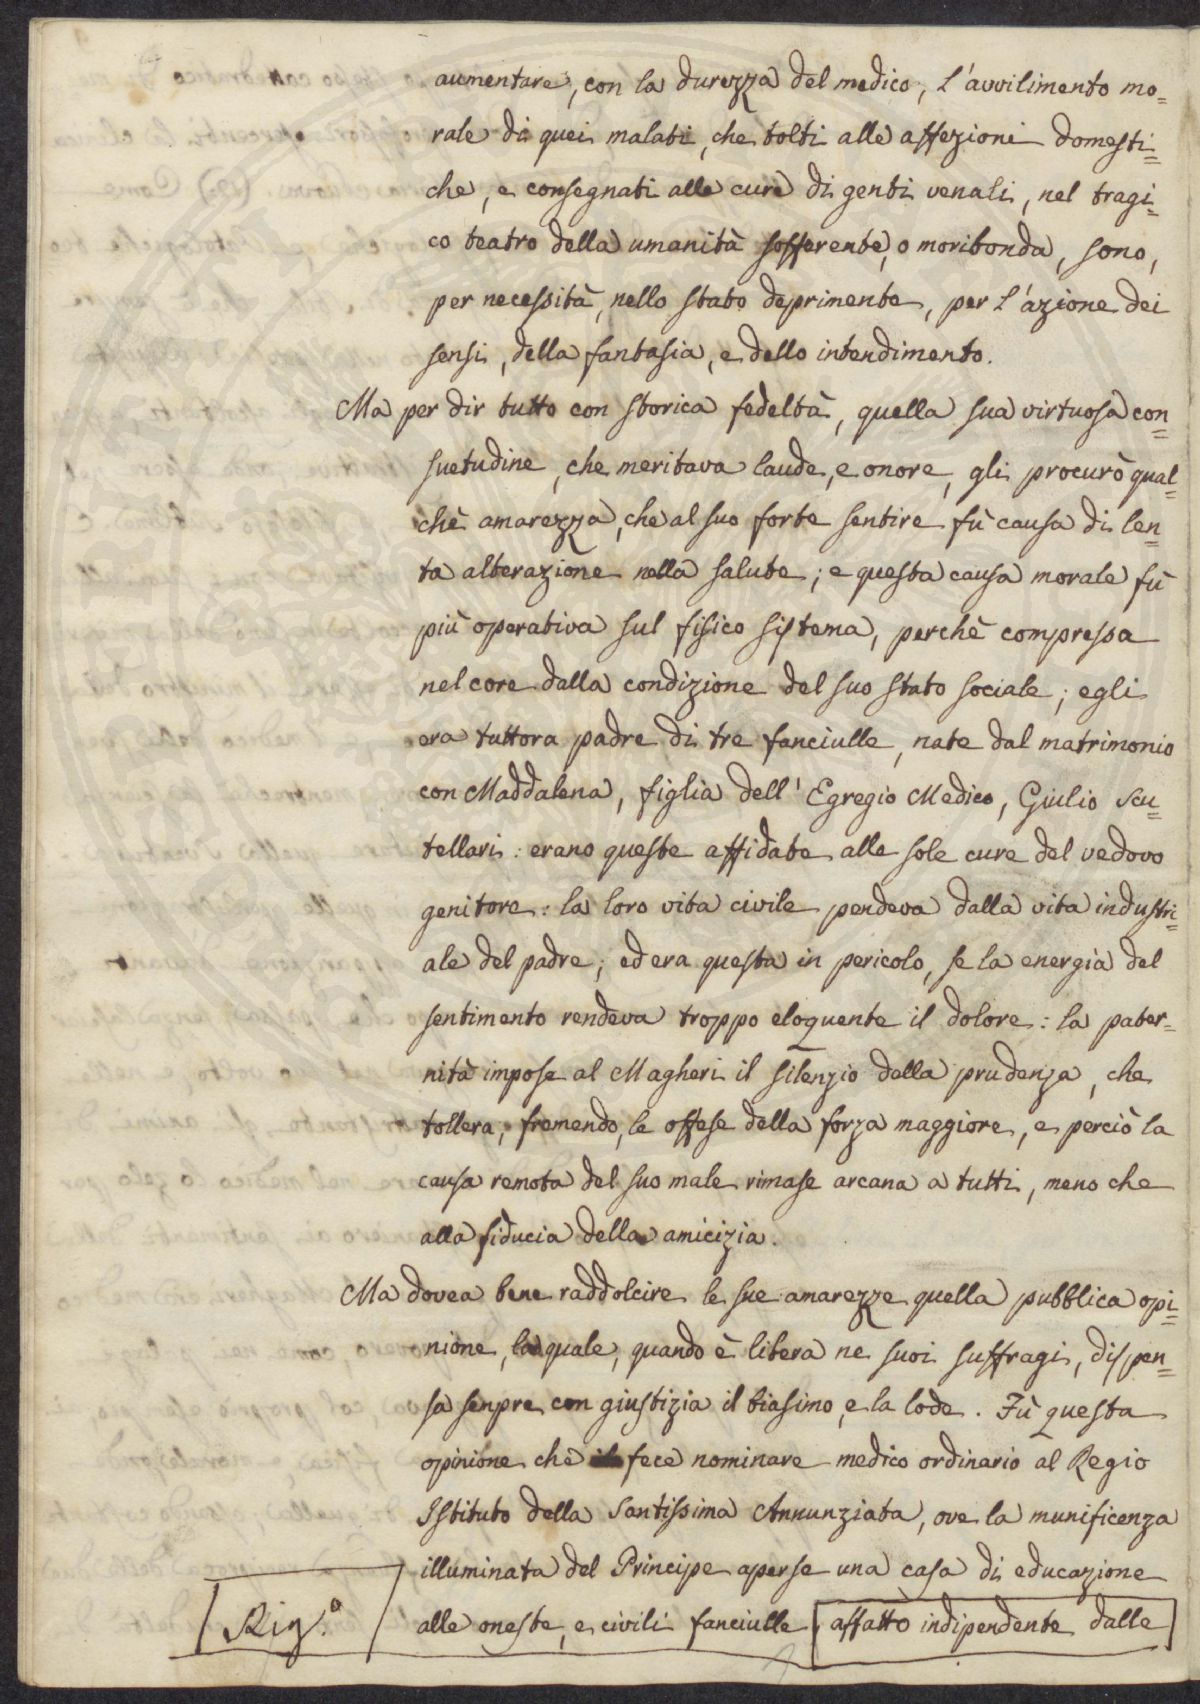 aumentare, con la durezza del medico, l'avvilimento mo=
rale di quei malati, che tolti alle affezioni domesti=
che, e consegnati alle cure di genti venali, nel tragi=
co teatro della umanità sofferente, o moribonda, sono,
per necessità, nello stato deprimente, per l'azione dei
sensi, della fantasia, e dello intendimento.
Ma per dir tutto con storica fedeltà, quella sua virtuosa con=
suetudine, che meritava laude, e onore, gli procurò qual=
chè amarezza, che al suo forte sentire fù causa di len=
ta alterazione nella salute; e questa causa morale fù
più operativa sul fisico sistema, perchè compressa
nel core dalla condizione del suo stato sociale; egli
era tuttora padre di tre fanciulle, nate dal matrimonio
con Maddalena, figlia dell' Egregio Medico, Giulio Scu=
tellari: erano queste affidate alle sole cure del vedovo
genitore: la loro vita civile pendeva dalla vita industri=
ale del padre; ed era questa in pericolo, se la energia del
sentimento rendeva troppo eloquente il dolore: la pater=
nità impose al Magheri il silenzio della prudenza, che
tollera, fremendo, le offese della forza maggiore, e perciò la
causa remota del suo male rimase arcana a tutti, meno che
alla fiducia della amicizia.
Ma dovea bene raddolcire le sue amarezze quella pubblica opi=
nione, la quale, quando è libera ne suoi suffragi, dispen=
sa senpre con giustizia il biasimo, e la lode. Fù questa
opinione che il fece nominare medico ordinario al Regio
Istituto della Santissima Annunziata, ove la munificenza
illuminata del Principe aperse una casa di educazione
alle oneste, e civili fanciulle affatto indipendente dalle
Rig.º